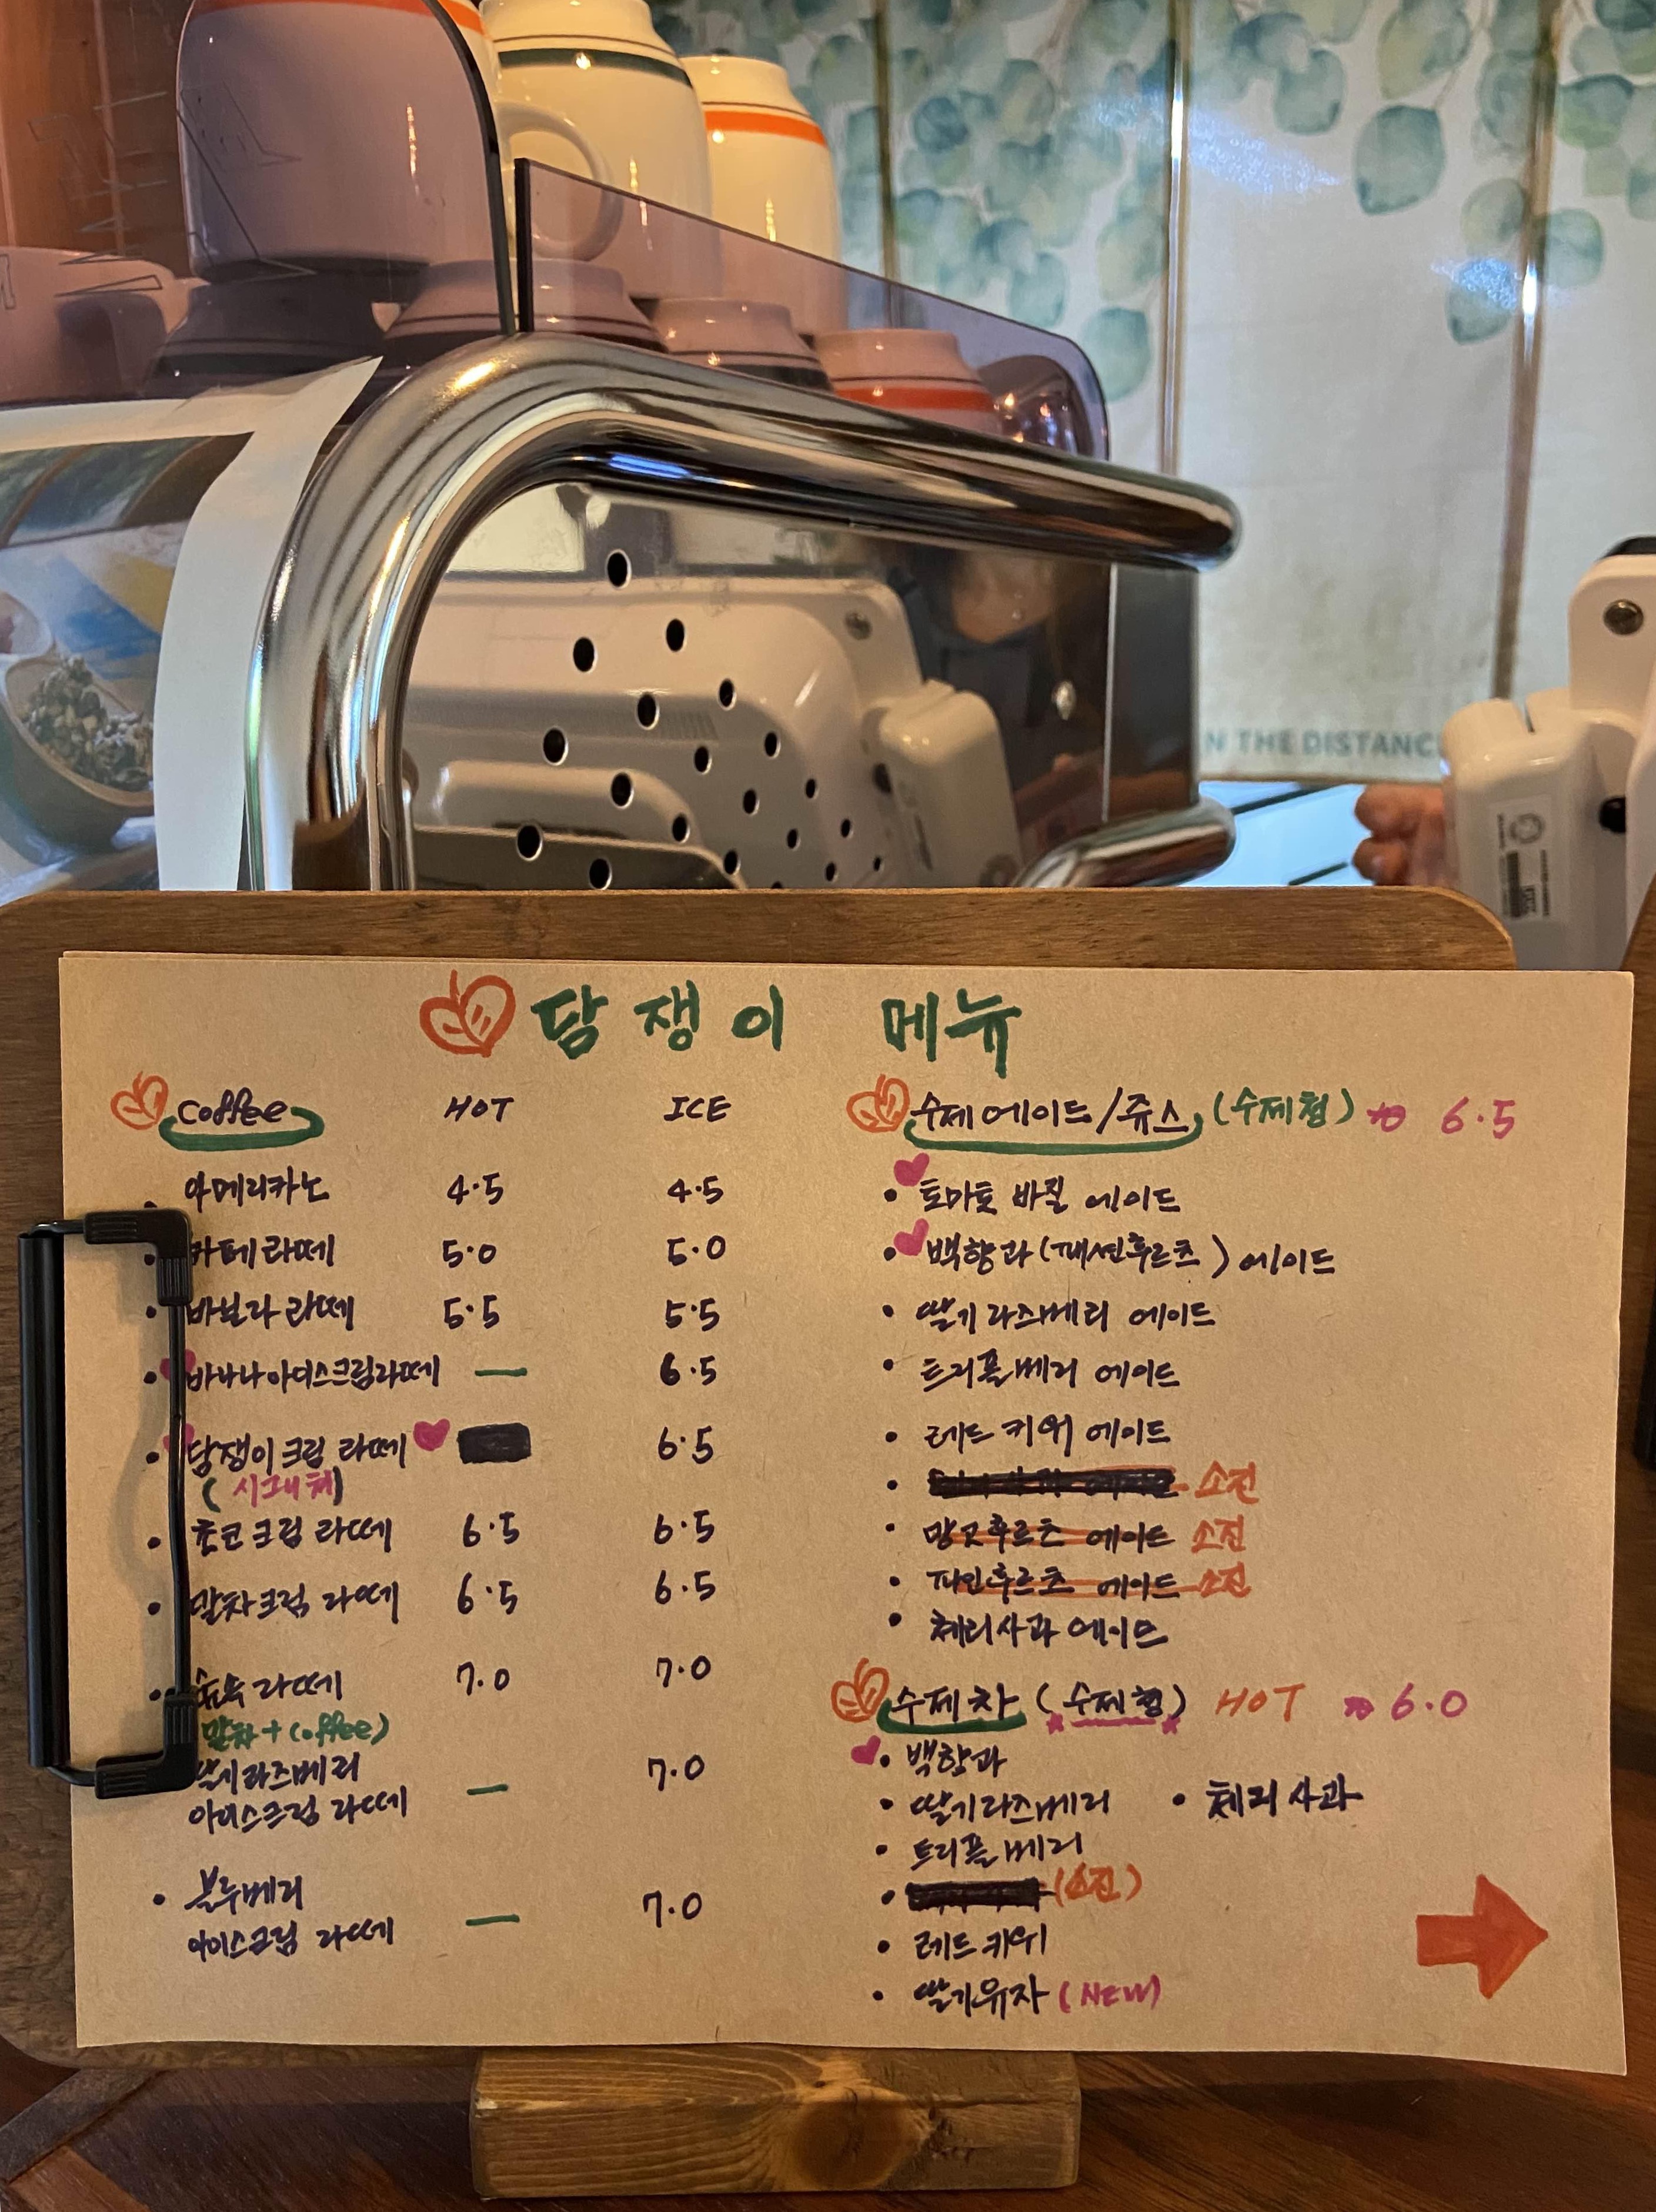 N THE DISTANC
담쟁이 메뉴
coffee HOT ICE
아메리카노 4.5 4.5
카페라떼 5.0 5.0
바닐라 라떼 5.5 5.5
바나나아이스크림라떼 — 6.5
담쟁이크림 라떼 6.5
(시그니처)
초코크림 라떼 6.5 6.5
말차크림 라떼 6.5 6.5
숲속라떼 7.0 7.0
말차+coffee)
딸기라즈베리
아이스크림 라떼 — 7.0
블루베리
아이스크림 라떼 — 7.0
수제에이드/쥬스 (수제청) 6.5
토마토 바질 에이드
백향과(패션후르츠) 에이드
딸기라즈베리 에이드
트리플베리 에이드
레드키위 에이드
소진
망고후르츠 에이드 소진
파인후르츠 에이드 소진
체리사과 에이드
수제차 (수제청) HOT 6.0
백향과
딸기라즈베리 • 체리사과
트리플베리
(소진)
레드키위
딸기유자 (NEW)